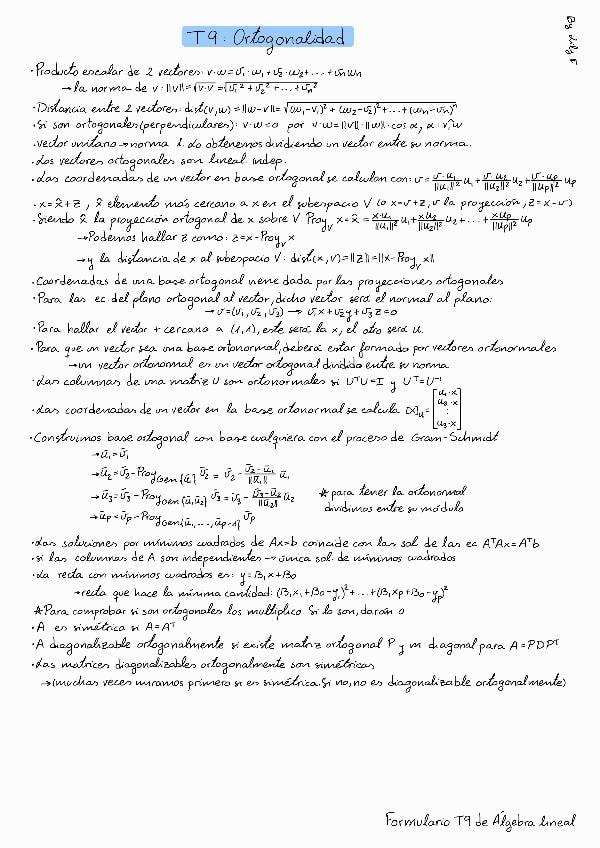 T9: Ortogonalidad
By Lily F
·Producto escalar de 2 vectores: v·w = v₁·w₁ + v₂·w₂ + ... + vₙwₙ
→ la norma de v · ||v|| = √v·v = √v₁² + v₂² + ... + vₙ²
·Distancia entre 2 vectores: dist(v,w) = ||w-v|| = √(w₁-v₁)² + (w₂-v₂)² + ... + (wₙ-vₙ)²
·Si son ortogonales (perpendiculares): v·w=0 por v·w = ||v||·||w||·cos α, α = v,w
·Vector unitario → norma 1. Lo obtenemos dividiendo un vector entre su norma.
·Los vectores ortogonales son lineal indep.
·Las coordenadas de un vector en base ortogonal se calculan con: v = v·u₁/||u₁||² u₁ + v·u₂/||u₂||² u₂ + v·uₚ/||uₚ||² uₚ
·x = x̂ + z, x̂ elemento más cercano a x en el subespacio V (o x=v+z, v la proyección, z=x-v)
·Siendo x̂ la proyección ortogonal de x sobre V Proy_V x = x̂ = x·u₁/||u₁||² u₁ + x·u₂/||u₂||² u₂ + ... + x·uₚ/||uₚ||² uₚ
→ Podemos hallar z como: z = x - Proy_V x
→ y la distancia de x al subespacio V: dist(x,V) = ||z|| = ||x - Proy_V x||
·Coordenadas de una base ortogonal viene dada por las proyecciones ortogonales
·Para las ec. del plano ortogonal al vector, dicho vector será el normal al plano:
→ v=(v₁,v₂,v₃) → v₁x+v₂y+v₃z=0
·Para hallar el vector + cercano a (1,1), este será la x, el otro será u.
·Para que un vector sea una base ortonormal, deberá estar formado por vectores ortonormales
→ un vector ortonormal es un vector ortogonal dividido entre su norma
·Las columnas de una matriz U son ortonormales si UᵀU=I y Uᵀ=U⁻¹
·Las coordenadas de un vector en la base ortonormal se calcula [x]ᵤ = [u₁·x u₂·x ⋮ uₙ·x]
·Construimos base ortogonal con base cualquiera con el proceso de Gram-Schmidt
→ ū₁ = v̄₁
→ ū₂ = v̄₂ - Proy_Gen{ū₁} v̄₂ = v̄₂ - v̄₂·ū₁/||ū₁|| ū₁
→ ū₃ = v̄₃ - Proy_Gen{ū₁,ū₂} v̄₃ = v̄₃ - v̄₃·ū₂/||ū₂|| ū₂
★ para tener la ortonormal
dividimos entre su módulo
→ ūₚ = v̄ₚ - Proy_Gen{ū₁,...,ūₚ₋₁} v̄ₚ
·Las soluciones por mínimos cuadrados de Ax=b coincide con las sol de las ec AᵀAx=Aᵀb
·si las columnas de A son independientes → única sol. de mínimos cuadrados
·La recta con mínimos cuadrados es: y=β₁x+β₀
→ recta que hace la mínima cantidad: (β₁x₁+β₀-y₁)² + ... + (β₁xₚ+β₀-yₚ)²
★Para comprobar si son ortogonales los multiplico. Si lo son, darán 0
·A es simétrica si A=Aᵀ
·A diagonalizable ortogonalmente si existe matriz ortogonal P y m diagonal para A=PDPᵀ
·Las matrices diagonalizables ortogonalmente son simétricas
→ (muchas veces miramos primero si es simétrica. Si no, no es diagonalizable ortogonalmente)
Formulario T9 de Álgebra lineal